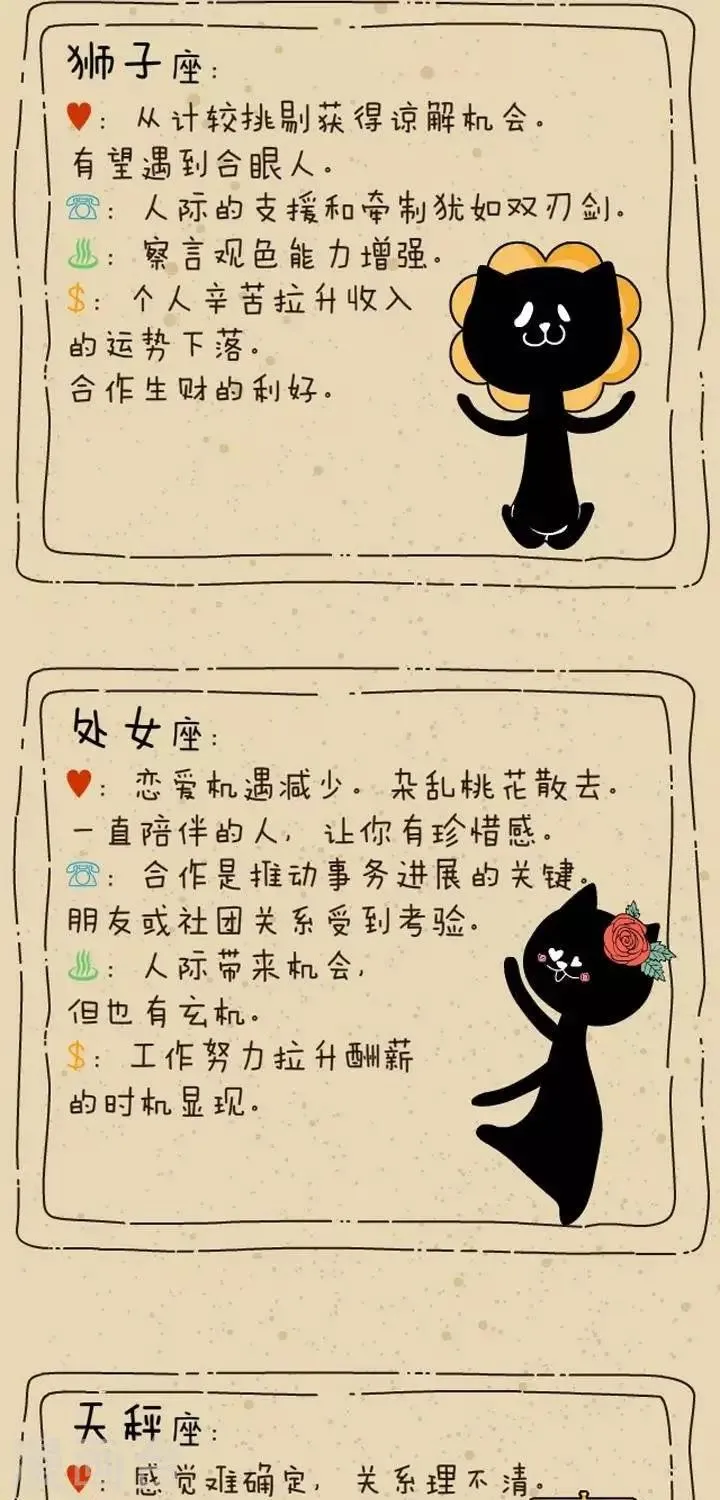 狮子座:
♥: 从计较挑剔获得谅解机会。
有望遇到合眼人。
☎: 人际的支援和牵制犹如双刃剑。
♨: 察言观色能力增强。
$: 个人辛苦拉升收入
的运势下落。
合作生财的利好。
处女座:
♥: 恋爱机遇减少。杂乱桃花散去。
一直陪伴的人, 让你有珍惜感。
☎: 合作是推动事务进展的关键。
朋友或社团关系受到考验。
♨: 人际带来机会,
但也有玄机。
$: 工作努力拉升酬薪
的时机显现。
天秤座:
♥: 感觉难确定, 关系理不清。